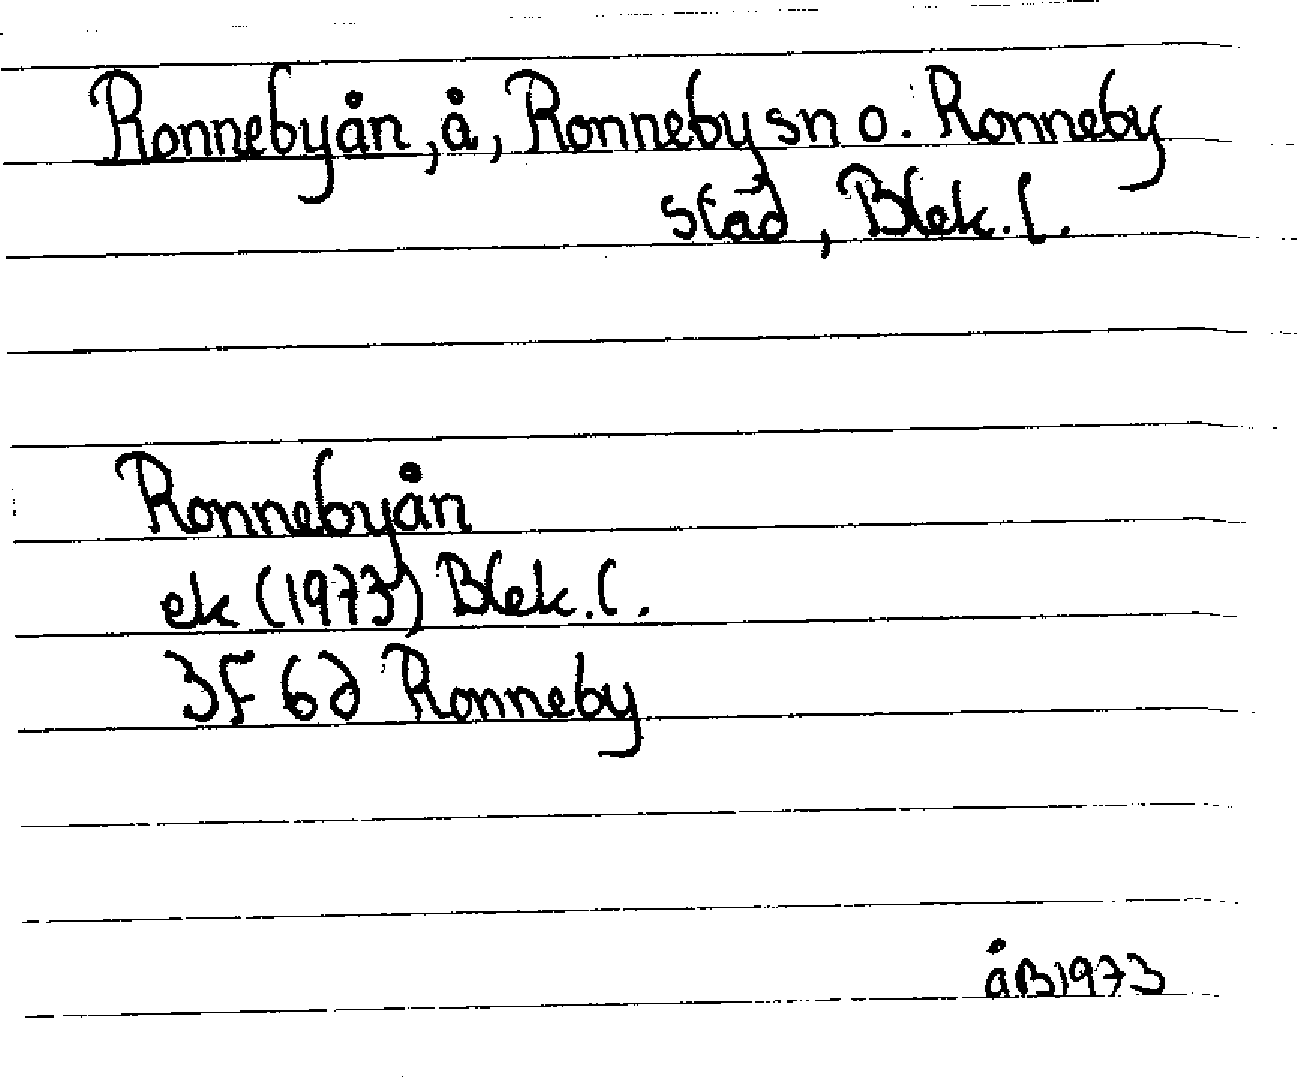 Ronnebyån, å, Ronneby sn o. Ronneby
stad, Blek. l.
Ronnebyån
ek (1973) Blek. l.
3F 6d Ronneby
åB1973